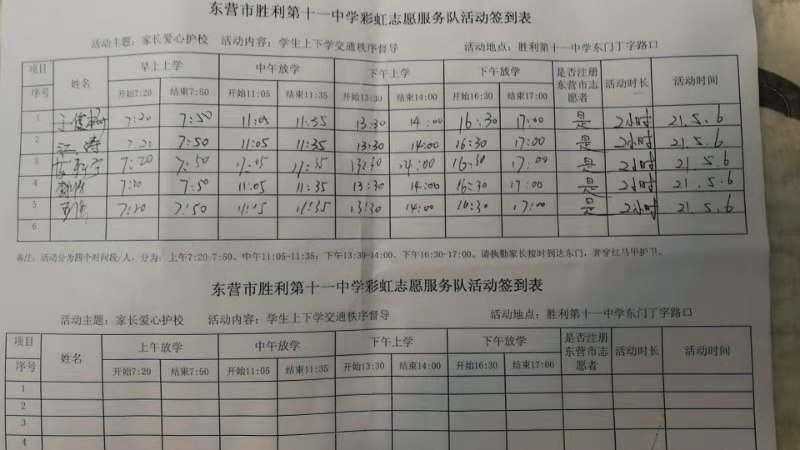 东营市胜利第十一中学彩虹志愿服务队活动签到表
活动主题：家长爱心护校 活动内容：学生上下学交通秩序督导 活动地点：胜利第十一中学东门丁字路口
项目 姓名 早上上学 中午放学 下午上学 下午放学 是否注册东营市志愿者 活动时长 活动时间
序号 开始7:20 结束7:50 开始11:05 结束11:35 开始13:30 结束14:00 开始16:30 结束17:00
1 7:20 7:50 11:05 11:35 13:30 14:00 16:30 17:00 是 2小时 21.5.6
2 江涛 7:20 7:50 11:05 11:35 13:30 14:00 16:30 17:00 是 2小时 21.5.6
3 7:20 7:50 11:05 11:35 13:30 14:00 16:30 17:00 是 2小时 21.5.6
4 7:20 7:50 11:05 11:35 13:30 14:00 16:30 17:00 是 2小时 21.5.6
5 7:20 7:50 11:05 11:35 13:30 14:00 16:30 17:00 是 2小时 21.5.6
6
备注：活动分为四个时间段/人，分为：上午7:20-7:50、中午11:05-11:35；下午13:30-14:00、下午16:30-17:00。请执勤家长按时到达东门，并穿红马甲护卫。
东营市胜利第十一中学彩虹志愿服务队活动签到表
活动主题：家长爱心护校 活动内容：学生上下学交通秩序督导 活动地点：胜利第十一中学东门丁字路口
项目 姓名 上午放学 中午放学 下午上学 下午放学 是否注册东营市志愿者 活动时长 活动时间
序号 开始7:20 结束7:50 开始11:05 结束11:35 开始13:30 结束14:00 开始16:30 结束17:00
1
2
3
4